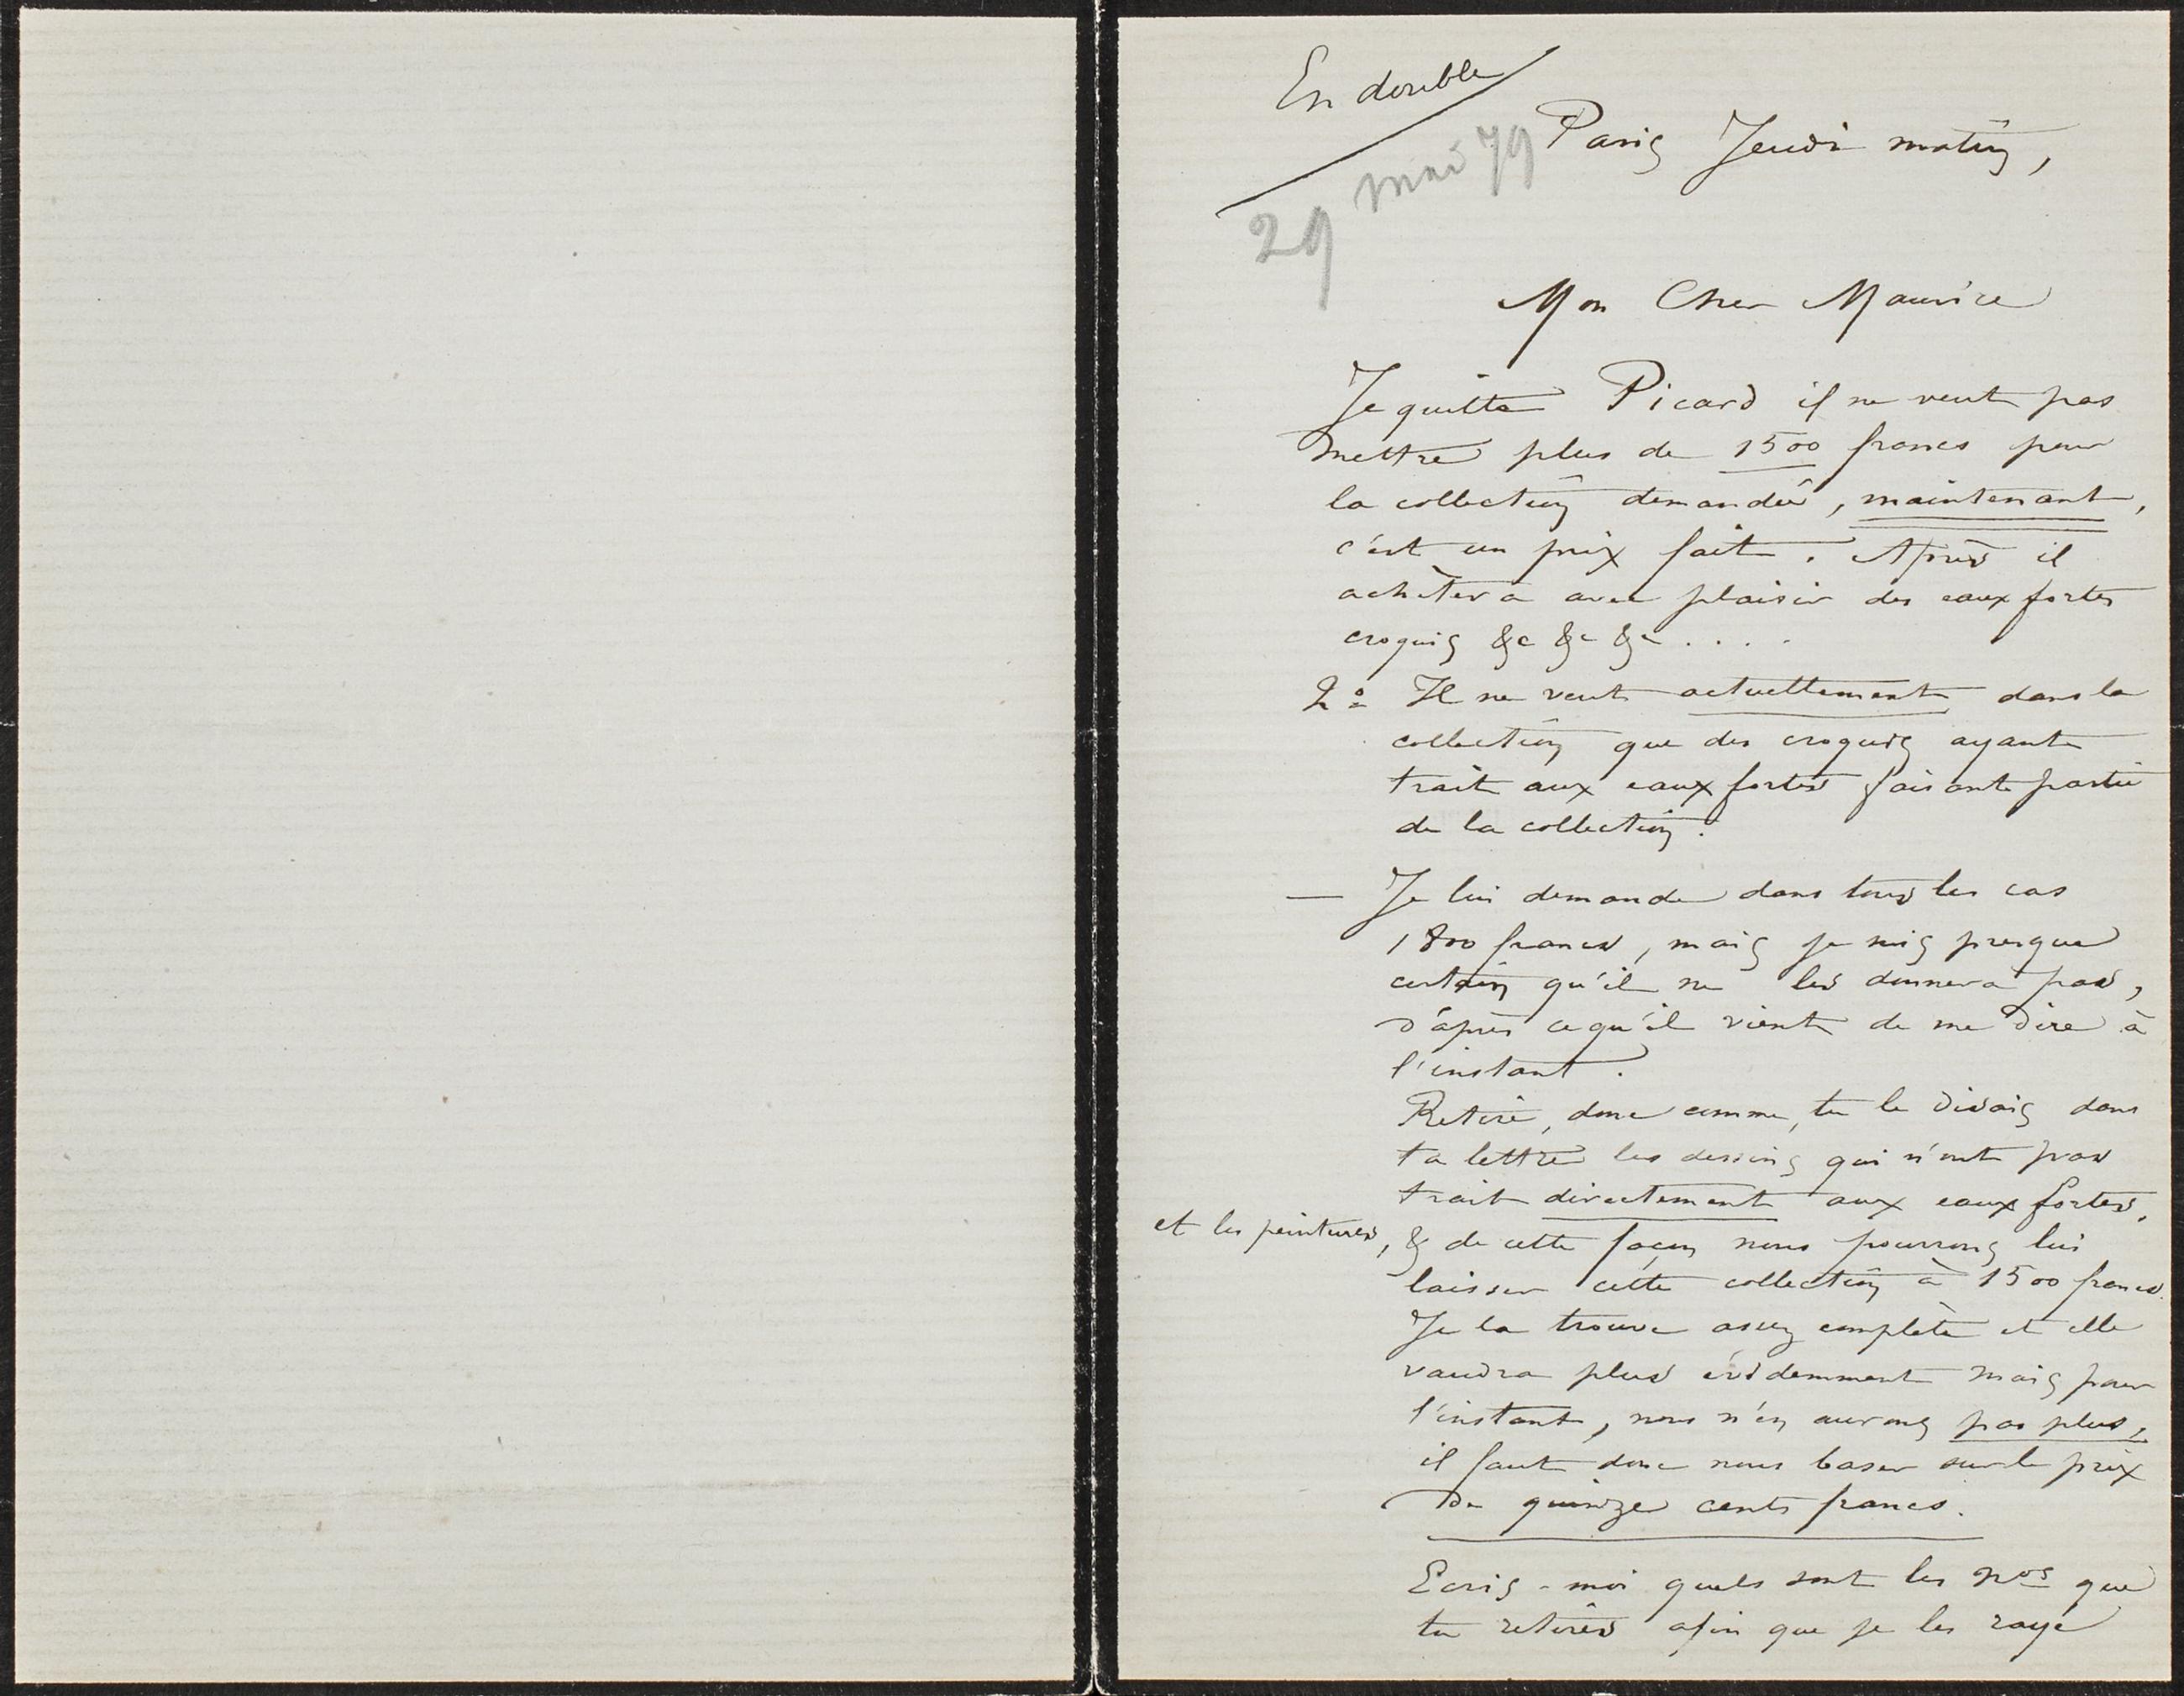 En double
29 mai 79
Paris Jeudi matin,
Mon Cher Maurice
Je quitte Picard il ne veut pas
mettre plus de 1500 francs pour
la collection demandée, maintenant,
c'est un prix fait. Après il
achètera avec plaisir des eaux fortes
croquis &c &c &c . . . .
2º Il ne veut actuellement dans la
collection que des croquis ayant
trait aux eaux fortes faisant partie
de la collection.
— Je lui demande dans tous les cas
1800 francs, mais je suis presque
certain qu'il ne les donnera pas,
d'après ce qu'il vient de me dire à
l'instant.
Retire, donc comme, tu le disais dans
ta lettre les dessins qui n'ont pas
trait directement aux eaux fortes,
et les peintures, & de cette façon nous pourrons lui
laisser cette collection à 1500 francs.
Je la trouve assez complète et elle
vaudra plus évidemment mais pour
l'instant, nous n'en aurons pas plus,
il faut donc nous baser sur le prix
de quinze cents francs.
Ecris-moi quels sont les nos que
tu retires afin que je les raye